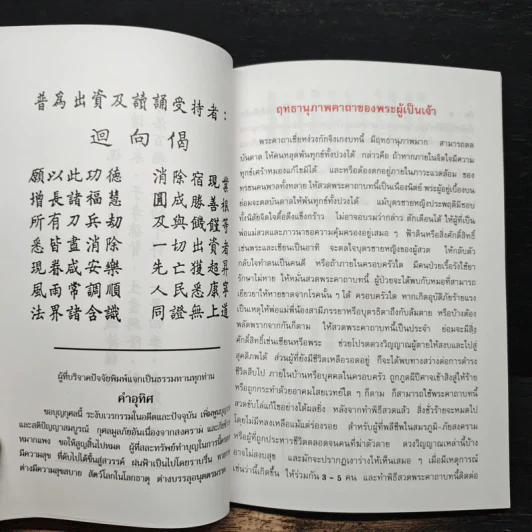 普為出資及讀誦受持者：
迴向偈
願以此功德　消除宿現業
增長諸福慧　圓成勝善根
所有刀兵劫　及與饑饉等
悉皆盡消除　一切出資者
現眷咸安樂　先亡獲超昇
風雨常調順　人民悉康寧
法界諸含識　同證無上道
ผู้ที่บริจาคปัจจัยพิมพ์แจกเป็นธรรมทานทุกท่าน
คำอุทิศ
ขอบุญกุศลนี้ ระงับเวรกรรมในอดีตและปัจจุบัน
และสติปัญญาสมบูรณ์ กุศลมูลภัยอันเนื่องจากสงคราม
หมากแพง ขอให้สูญสิ้นไปหมด ผู้ที่สละทรัพย์ทำบุญในการนี้
มีความสุข ที่ดับไปได้ขึ้นสู่สวรรค์ ฝนฟ้าเป็นไปโดยราบรื่น
ต่างมีความสุขสบาย สัตว์โลกในโลกธาตุ ต่างบรรลุ
ฤทธานุภาพคาถาของพระผู้เป็นเจ้า
พระคาถาเซี่ยหง่วงกักจิงเกงบทนี้ มีฤทธานุภาพมาก สามารถดล
บันดาล ให้คนหลุดพ้นทุกข์ทั้งปวงได้ กล่าวคือ ถ้าหากภายในจิตใจมีความ
ทุกข์เศร้าหมองแก้ไขมิได้ และหรือต้องตกอยู่ภายในภาวะแวดล้อม ของ
ทรชนคนพาลทั้งหลาย ให้สวดพระคาถาบทนี้เป็นเนืองนิตย์ พระผู้อยู่เบื้องบน
ย่อมจะดลบันดาลให้พ้นทุกข์ทั้งปวงได้ แม้บุตรชายหญิงประพฤติมิชอบ
ทั้งนิสัยจิตใจดื้อดึงแข็งกร้าว ไม่อาจอบรมว่ากล่าว ตักเตือนได้ ให้ผู้ที่เป็น
พ่อแม่สวดและภาวนาขอความคุ้มครองอยู่เสมอ ๆ ฟ้าดินหรือสิ่งศักดิ์สิทธิ์
เช่นพระและเซียนเป็นอาทิ จะดลใจบุตรชายหญิงของผู้สวด ให้กลับตัว
กลับใจทำตนเป็นคนดี หรือถ้าหากภายในครอบครัวใด มีคนป่วยเรื้อรังใช้ยา
รักษาไม่หาย ให้หมั่นสวดพระคาถาบทนี้ ผู้ป่วยจะได้พบกับหมอที่สามารถ
เยียวยาให้หายขาดจากโรคนั้น ๆ ได้ ครอบครัวใด หากเกิดอุบัติภัยร้ายแรง
เป็นเหตุให้พ่อแม่พี่น้องสามีภรรยาหรือบุตรธิดาถึงกับล้มตาย หรือบ้างต้อง
พลัดพรากจากกันก็ตาม ให้สวดพระคาถาบทนี้เป็นประจำ ย่อมจะมีสิ่ง
ศักดิ์สิทธิ์เช่นเซียนหรือพระ ช่วยโปรดดวงวิญญาณผู้ตายให้สงบและไปสู่
สุคติภพได้ ส่วนผู้ที่ยังมีชีวิตเหลือรอดอยู่ ก็จะได้พบทางสว่างต่อการดำรง
ชีวิตสืบไป ภายในบ้านหรือบุคคลในครอบครัวใด ถูกภูตผีปีศาจเข้าสิงสู่ให้ร้าย
หรือถูกกระทำด้วยอาคมไสยเวทย์ใด ๆ ก็ตาม ก็สามารถใช้พระคาถาบทนี้
สวดขับไล่แก้ไขอย่างได้ผลยิ่ง หลังจากทำพิธีสวดแล้ว สิ่งชั่วร้ายจะหมดไป
โดยไม่มีหลงเหลือแม้แต่ร่องรอย สำหรับผู้ที่พลีชีพในสมรภูมิ-ภัยสงคราม
หรือผู้ที่ถูกประหารชีวิตตลอดจนคนที่ฆ่าตัวตาย ดวงวิญญาณเหล่านี้บ้าง
อาจไม่สงบสุข และมักจะปรากฏเงาร่างให้เห็นเสมอ ๆ เมื่อมีเหตุการณ์
เช่นว่านี้เกิดขึ้น ให้ร่วมกัน 3 – 5 คน และทำพิธีสวดพระคาถาบทนี้ติดต่อ